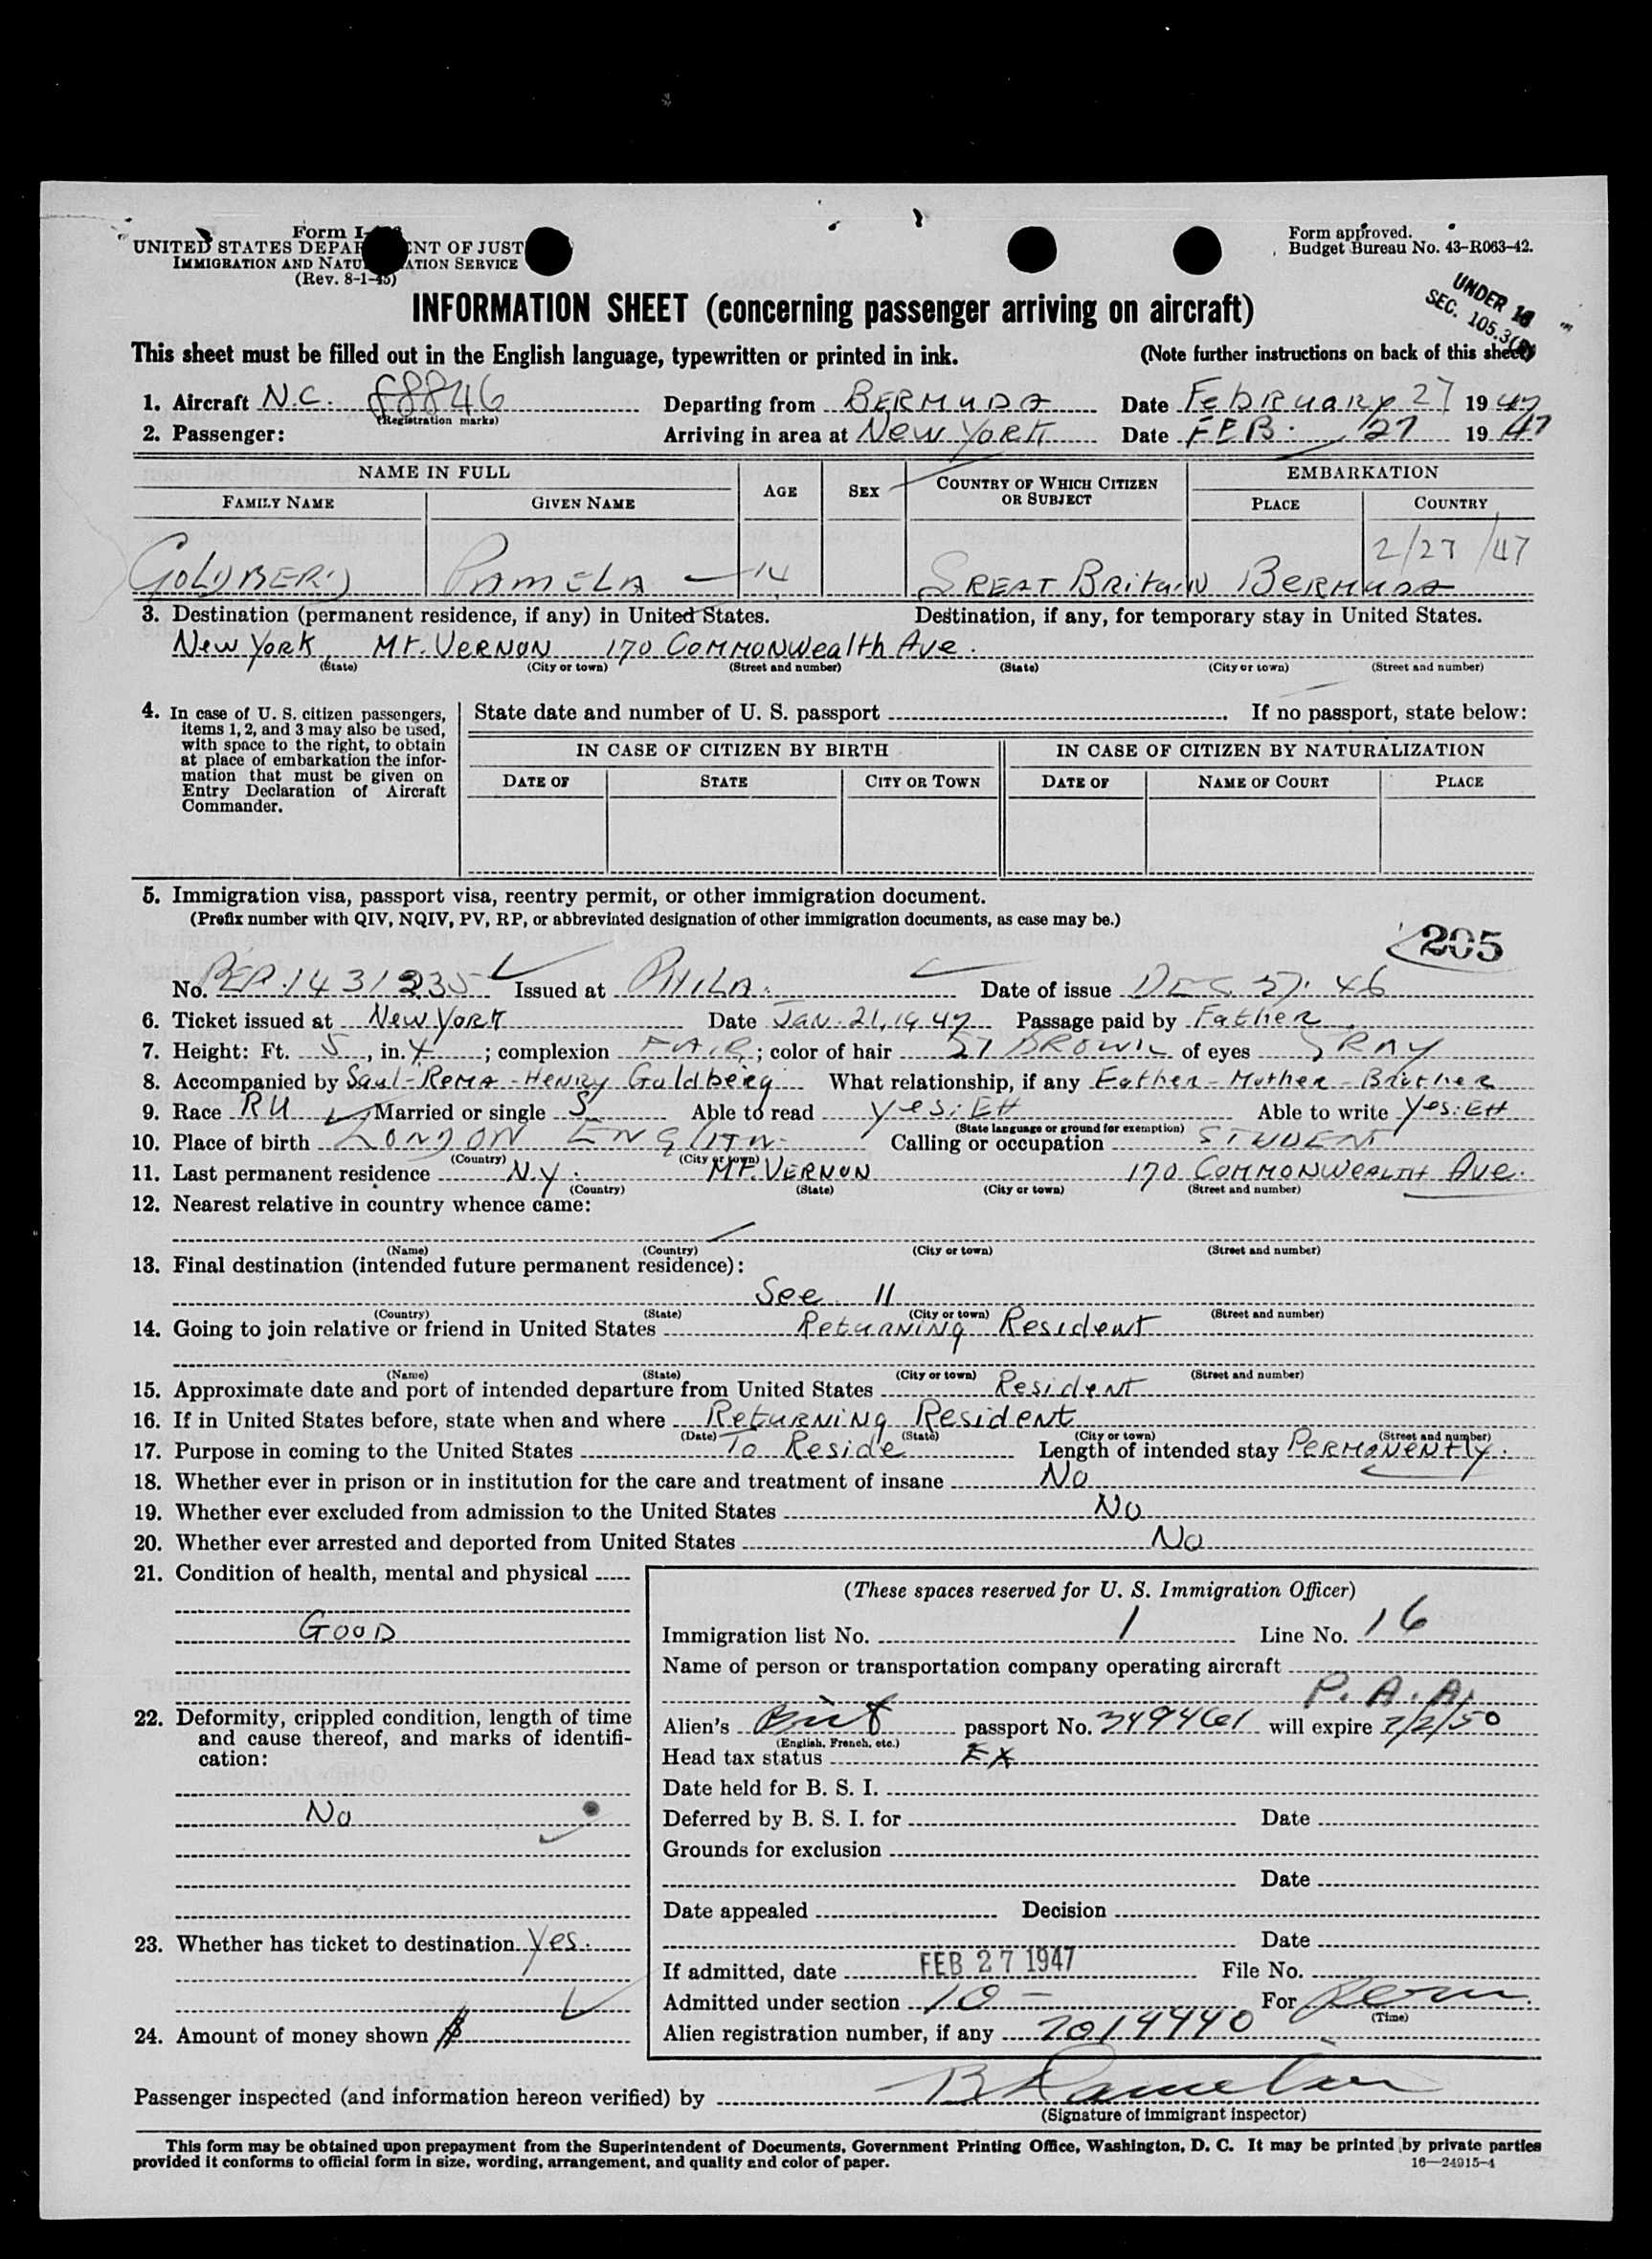 Form I-
UNITED STATES DEPARTMENT OF JUST
IMMIGRATION AND NATURALIZATION SERVICE
(Rev. 8-1-45)
Form approved.
Budget Bureau No. 43-R063-42.
INFORMATION SHEET (concerning passenger arriving on aircraft)
UNDER 16
SEC. 105.3
This sheet must be filled out in the English language, typewritten or printed in ink. (Note further instructions on back of this sheet)
1. Aircraft N.C. 88846 Departing from BERMUDA Date FebRuary 27 1947
(Registration marks)
2. Passenger: Arriving in area at New York Date FEB. 27 1947
NAME IN FULL AGE SEX COUNTRY OF WHICH CITIZEN OR SUBJECT EMBARKATION
FAMILY NAME GIVEN NAME PLACE COUNTRY
2/27/47
GOLDBERG PAMELA 14 GREAT BRitaiN BERMUDA
3. Destination (permanent residence, if any) in United States. Destination, if any, for temporary stay in United States.
New York Mt. VERNON 170 COMMONWealth Ave.
(State) (City or town) (Street and number) (State) (City or town) (Street and number)
4. In case of U. S. citizen passengers, items 1, 2, and 3 may also be used, with space to the right, to obtain at place of embarkation the information that must be given on Entry Declaration of Aircraft Commander.
State date and number of U. S. passport If no passport, state below:
IN CASE OF CITIZEN BY BIRTH IN CASE OF CITIZEN BY NATURALIZATION
DATE OF STATE CITY OR TOWN DATE OF NAME OF COURT PLACE
5. Immigration visa, passport visa, reentry permit, or other immigration document.
(Prefix number with QIV, NQIV, PV, RP, or abbreviated designation of other immigration documents, as case may be.)
205
No. REP. 1431235 Issued at PHILA. Date of issue DEC. 27. 46
6. Ticket issued at New York Date Jan. 21, 1947 Passage paid by Father
7. Height: Ft. 5, in. 4; complexion FAIR; color of hair BROWN of eyes GRAY
8. Accompanied by Saul-Rema-Henry Goldberg What relationship, if any Father-Mother-Brother
9. Race RU Married or single S Able to read Yes: EH Able to write Yes: EH
(State language or ground for exemption)
10. Place of birth LONDON Calling or occupation STUDENT
(Country) (City or town)
11. Last permanent residence N.Y. Mt. VERNON 170 COMMONWEALTH Ave.
(Country) (State) (City or town) (Street and number)
12. Nearest relative in country whence came:
(Name) (Country) (City or town) (Street and number)
13. Final destination (intended future permanent residence):
See 11
(Country) (State) (City or town) (Street and number)
14. Going to join relative or friend in United States Returning Resident
(Name) (State) (City or town) (Street and number)
15. Approximate date and port of intended departure from United States Resident
16. If in United States before, state when and where Returning Resident
(Date) (State) (City or town) (Street and number)
17. Purpose in coming to the United States To Reside Length of intended stay PERMANENTly.
18. Whether ever in prison or in institution for the care and treatment of insane No
19. Whether ever excluded from admission to the United States No
20. Whether ever arrested and deported from United States No
21. Condition of health, mental and physical
GOOD
22. Deformity, crippled condition, length of time and cause thereof, and marks of identification:
No
23. Whether has ticket to destination Yes.
24. Amount of money shown $
(These spaces reserved for U. S. Immigration Officer)
Immigration list No. 1 Line No. 16
Name of person or transportation company operating aircraft
P. A. A.
Alien's Brit passport No. 349461 will expire 7/2/50
(English, French, etc.)
Head tax status EX
Date held for B. S. I.
Deferred by B. S. I. for Date
Grounds for exclusion
Date
Date appealed Decision
Date
If admitted, date FEB 27 1947 File No.
Admitted under section 10 - For Perm.
(Time)
Alien registration number, if any 7019440
Passenger inspected (and information hereon verified) by
(Signature of immigrant inspector)
This form may be obtained upon prepayment from the Superintendent of Documents, Government Printing Office, Washington, D. C. It may be printed by private parties
provided it conforms to official form in size, wording, arrangement, and quality and color of paper. 16—24915-1